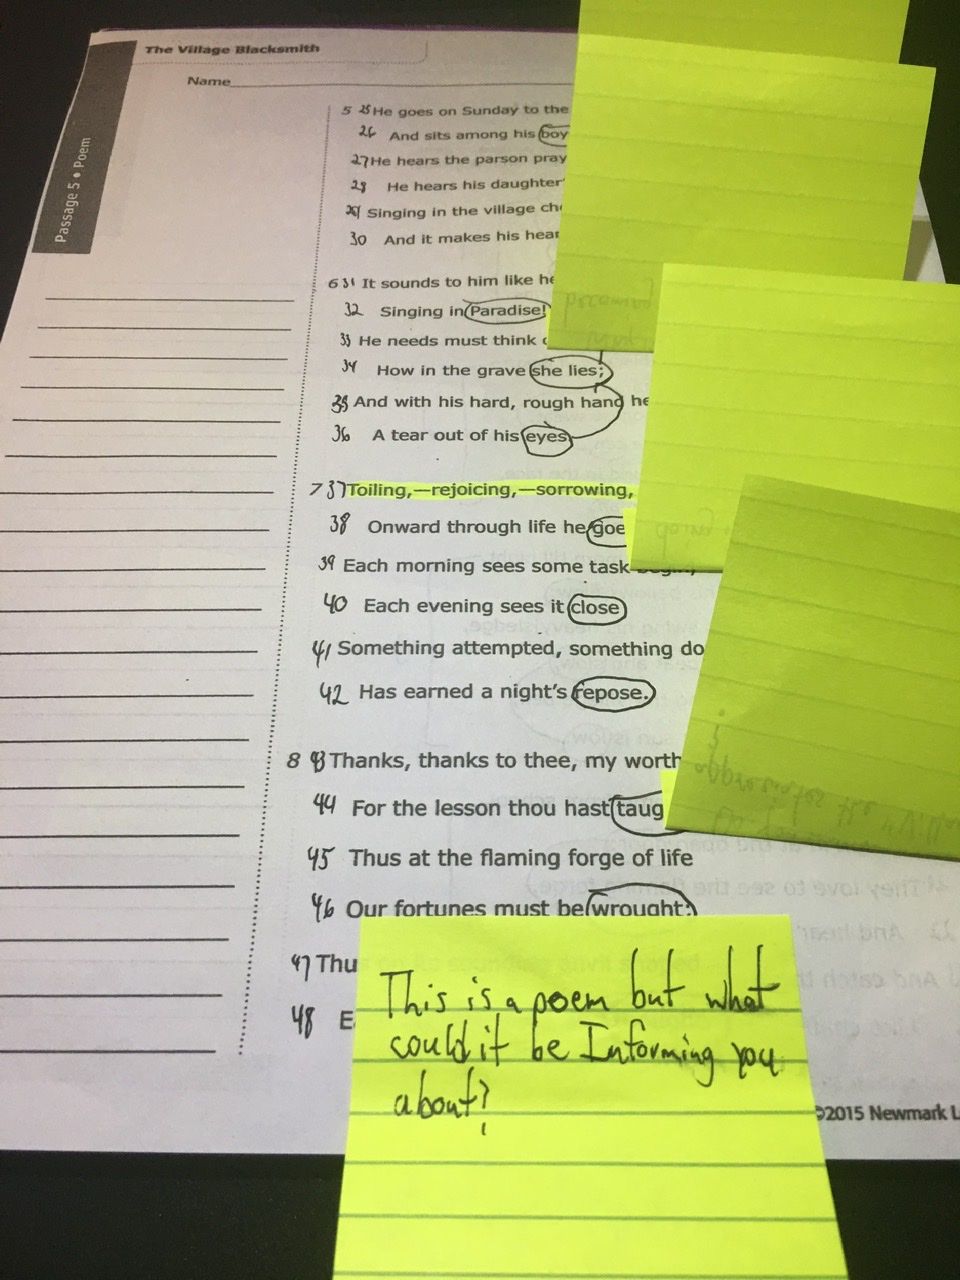 The Village Blacksmith
Name
Passage 5 • Poem
5 25 He goes on Sunday to the
26 And sits among his boy
27 He hears the parson pray
28 He hears his daughter'
29 Singing in the village ch
30 And it makes his hear
6 31 It sounds to him like he
32 Singing in Paradise!
33 He needs must think
34 How in the grave she lies;
35 And with his hard, rough hand he
36 A tear out of his eyes
7 37 Toiling,—rejoicing,—sorrowing,
38 Onward through life he goe
39 Each morning sees some task
40 Each evening sees it close
41 Something attempted, something do
42 Has earned a night's repose.
8 43 Thanks, thanks to thee, my worth
44 For the lesson thou hast taug
45 Thus at the flaming forge of life
46 Our fortunes must be wrought;
47 Thu
48 E
This is a poem but what
could it be Informing you
about?
©2015 Newmark L